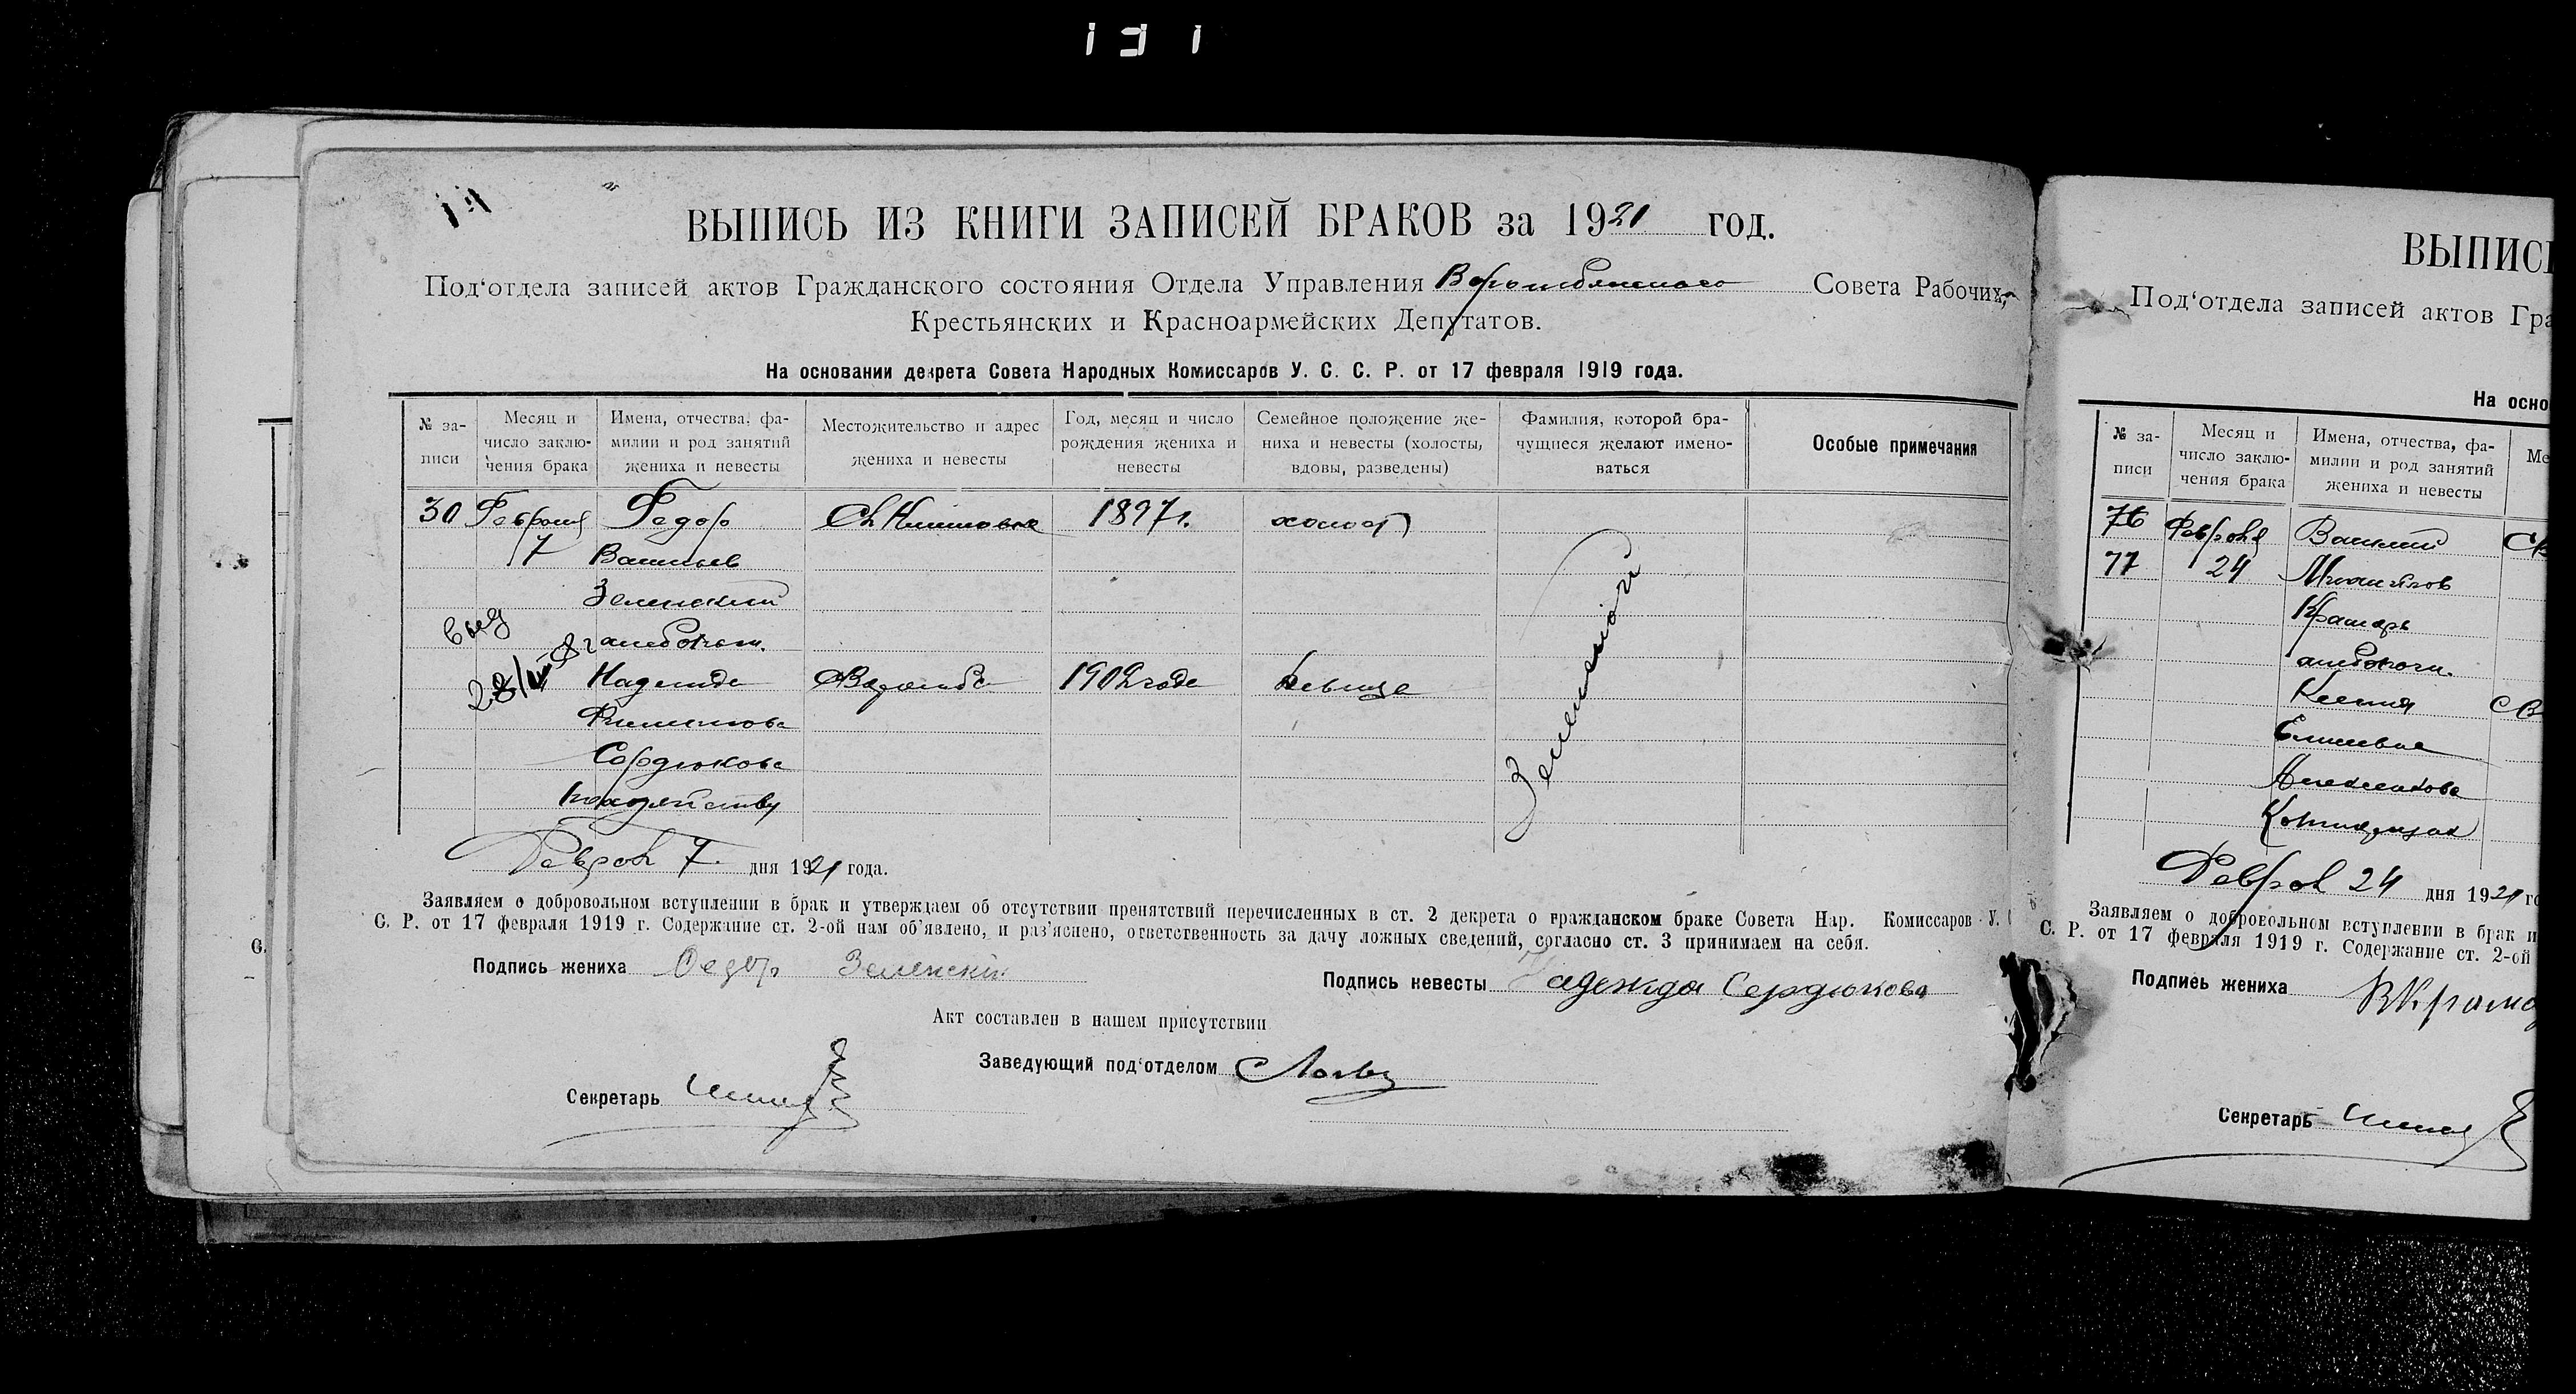 ВЫПИСЬ ИЗ КНИГИ ЗАПИСЕЙ БРАКОВ за 1921 год.
Под‘отдела записей актов Гражданского состояния Отдела Управления Совета Рабочих,
Крестьянских и Красноармейских Депутатов.
На основании декрета Совета Народных Комиссаров У. С. С. Р. от 17 февраля 1919 года.
№ за-
писи
Месяц и
число заклю-
чения брака
Имена, отчества, фа-
милии и род занятий
жениха и невесты
Местожительство и адрес
жениха и невесты
Год, месяц и число
рождения жениха и
невесты
Семейное положение же-
ниха и невесты (холосты,
вдовы, разведены)
Фамилия, которой бра-
чущиеся желают имено-
ваться
Особые примечания
30 Февраля Федор 1897 г. холост
7 Васильев
Зеленский
хлебопаш.
Надежда 1902 года девица
Сердюкова
Февраля 7 дня 1921 года.
Заявляем о добровольном вступлении в брак и утверждаем об отсутствии препятствий перечисленных в ст. 2 декрета о гражданском браке Совета Нар. Комиссаров У.
С. Р. от 17 февраля 1919 г. Содержание ст. 2-ой нам об‘явлено, и раз‘яснено, ответственность за дачу ложных сведений, согласно ст. 3 принимаем на себя.
Подпись жениха Федор Зеленский
Подпись невесты Надежда Сердюкова
Акт составлен в нашем присутствии
Заведующий под‘отделом
Секретарь
ВЫПИС
Под‘отдела записей актов Гра
На осно
№ за-
писи
Месяц и
число заклю-
чения брака
Имена, отчества, фа-
милии и род занятий
жениха и невесты
Ме
76 Февраля Василий
77 24 Михайлов
Крамарь
хлебопаш.
Ксения
Феврал 24 дня 1921 го
Заявляем о добровольном вступлении в брак и
С. Р. от 17 февраля 1919 г. Содержание ст. 2-ой
Подпись жениха
Секретарь